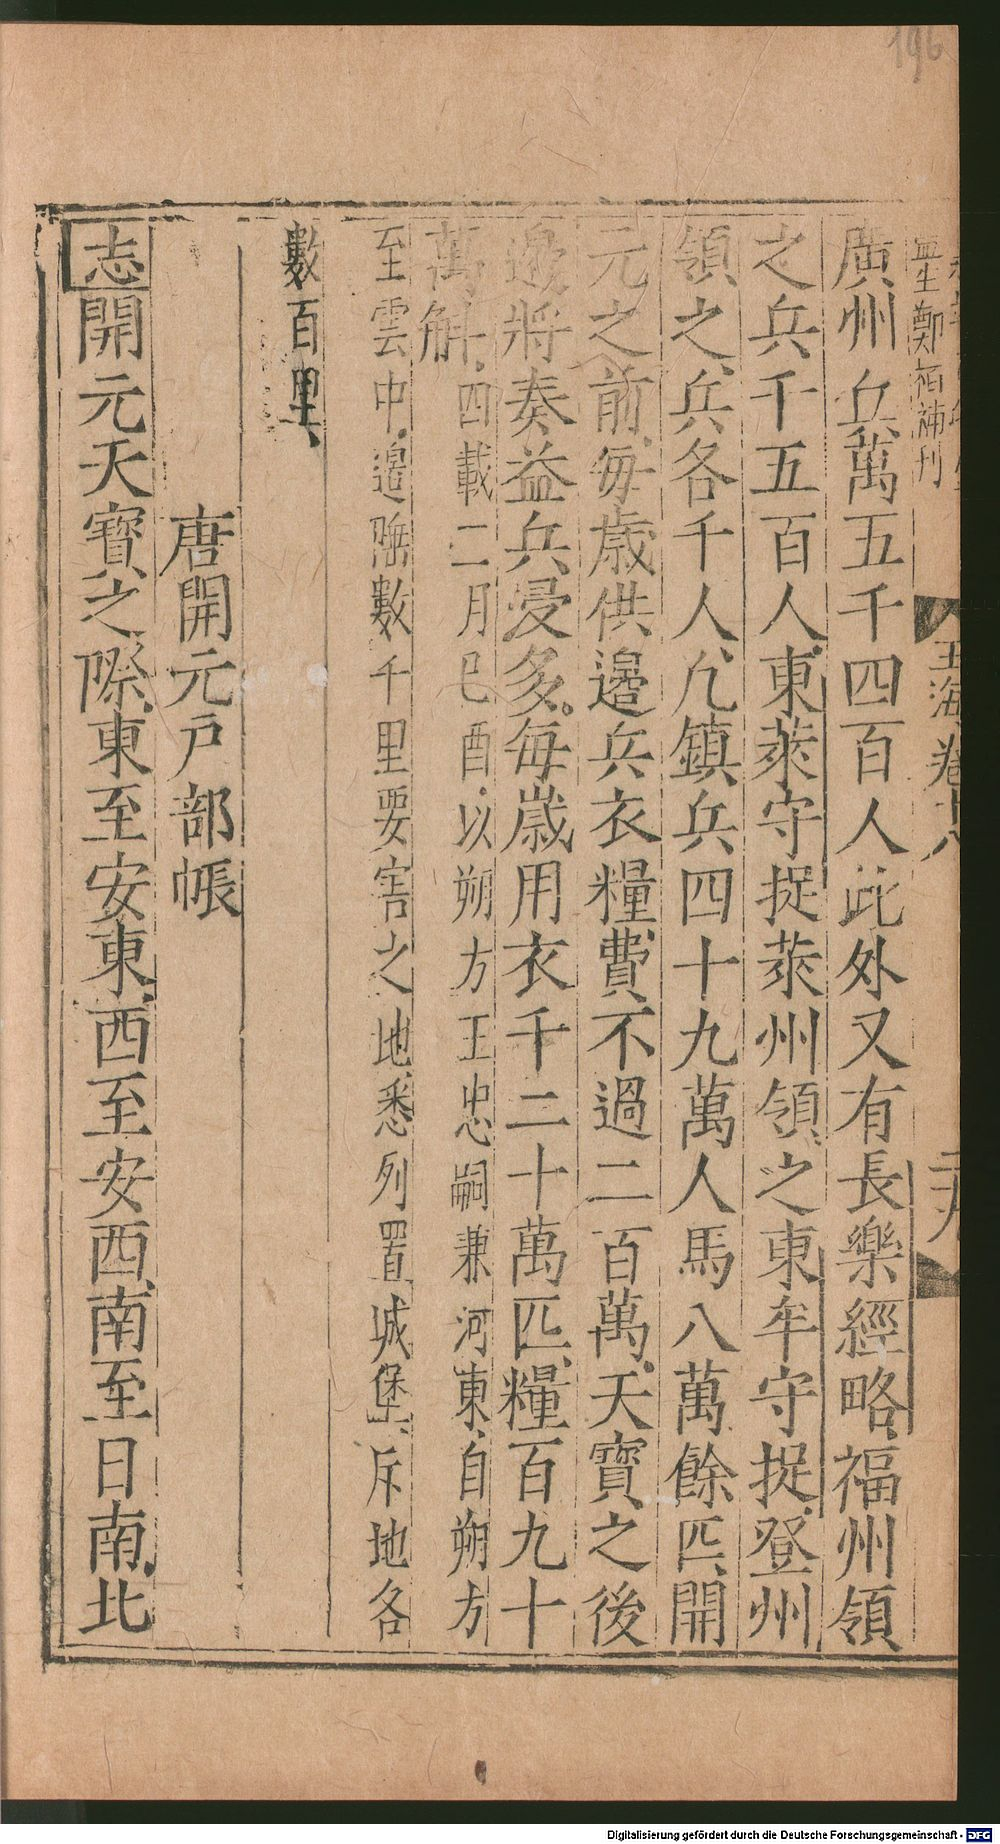 196
監生鄭栢補刊
玉海卷十八
二十九
廣州兵萬五千四百人此外又有長樂經略福州領
之兵千五百人東萊守捉萊州領之東牟守捉登州
領之兵各千人凢鎮兵四十九萬人馬八萬餘匹開
元之前每歲供邊兵衣糧費不過二百萬天寶之後
邊將奏益兵浸多每歲用衣千二十萬匹糧百九十
萬斛四載二月巳酉以朔方王忠嗣兼河東自朔方
至雲中邊陲數千里要害之地悉列置城堡斥地各
數百里
唐開元戸部帳
志開元天寶之際東至安東西至安西南至日南北
Digitalisierung gefördert durch die Deutsche Forschungsgemeinschaft - DFG